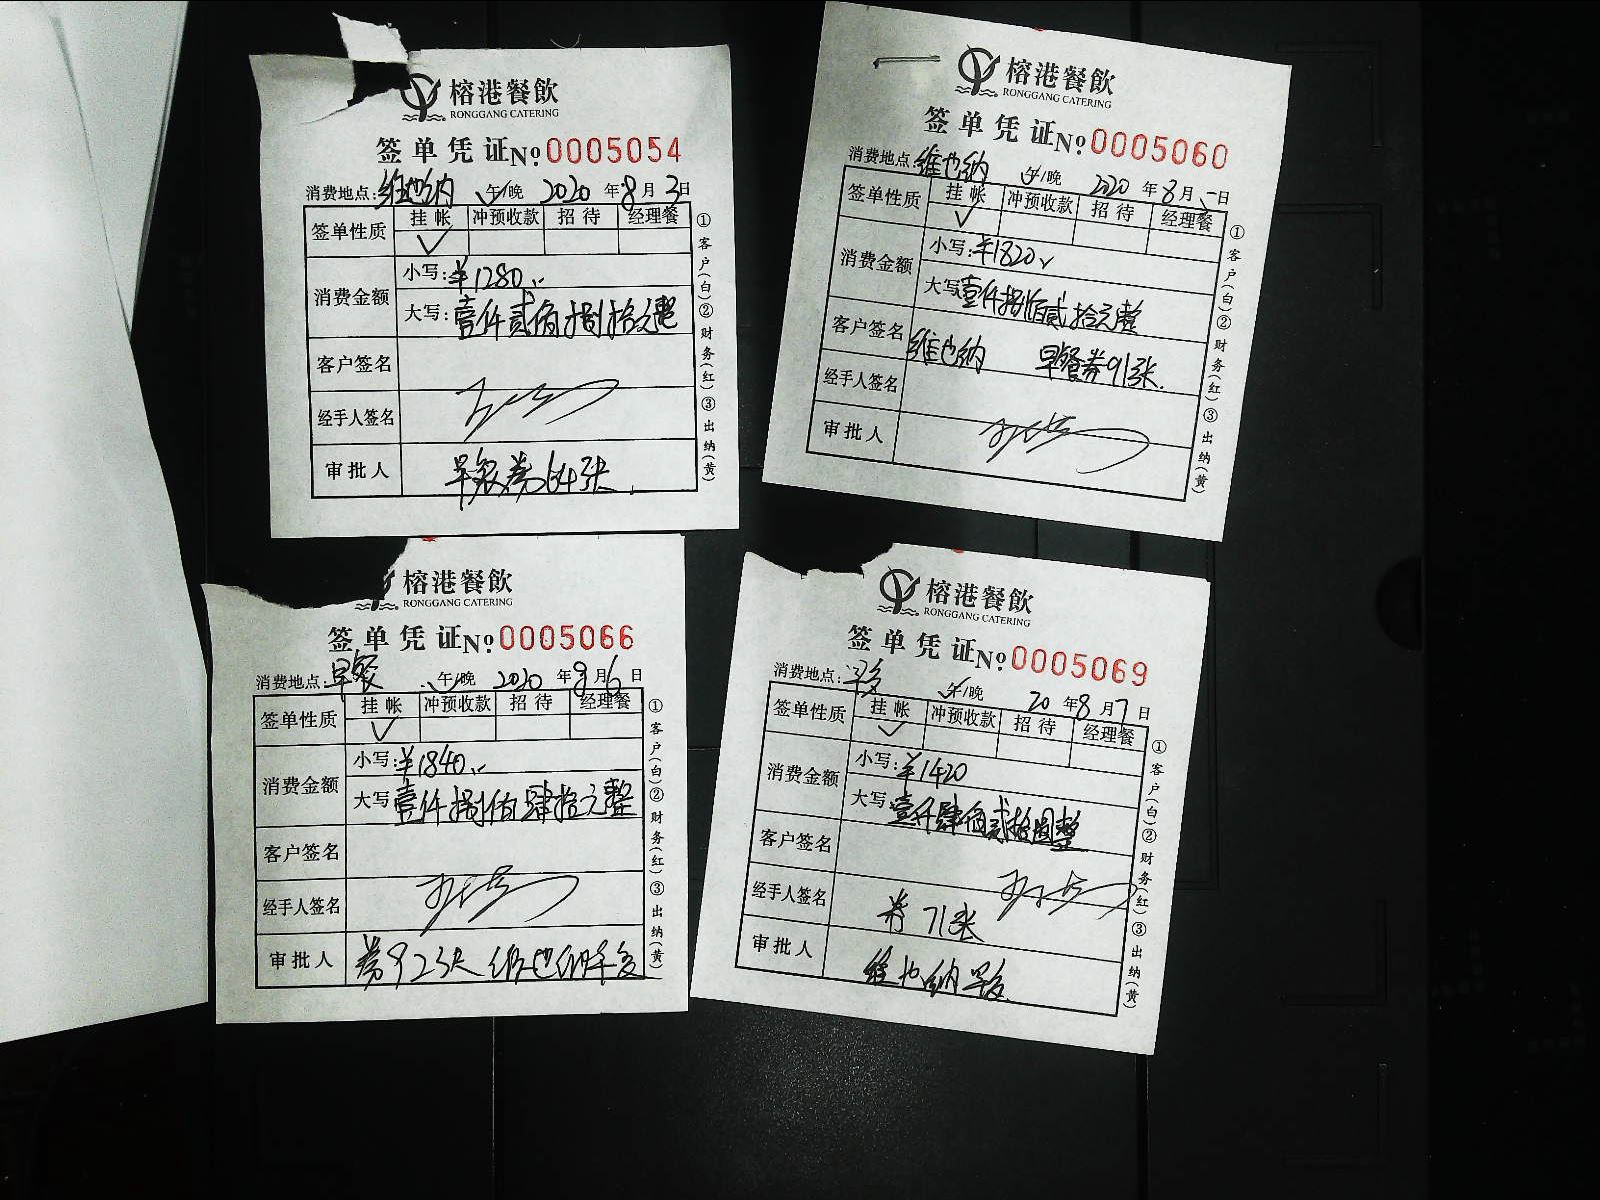 榕港餐飲
RONGGANG CATERING
签单凭证 №0005054
消费地点:维也纳 午/晚 2020年8月3日
签单性质 挂帐 冲预收款 招待 经理餐
✓
消费金额 小写:¥1280
大写:壹仟贰佰捌拾元整
客户签名
经手人签名
审批人 早餐券64张
①客户(白)②财务(红)③出纳(黄)
榕港餐飲
RONGGANG CATERING
签单凭证 №0005060
消费地点:维也纳 午/晚 2020年8月 日
签单性质 挂帐 冲预收款 招待 经理餐
✓
消费金额 小写:¥1820
大写 壹仟捌佰贰拾元整
客户签名 维也纳 早餐券91张
经手人签名
审批人
①客户(白)②财务(红)③出纳(黄)
榕港餐飲
RONGGANG CATERING
签单凭证 №0005066
消费地点:早餐 午/晚 2020年8月6日
签单性质 挂帐 冲预收款 招待 经理餐
✓
消费金额 小写:¥1840
大写 壹仟捌佰肆拾元整
客户签名
经手人签名
审批人 券92张 维也纳
①客户(白)②财务(红)③出纳(黄)
榕港餐飲
RONGGANG CATERING
签单凭证 №0005069
消费地点: 午/晚 20年8月7日
签单性质 挂帐 冲预收款 招待 经理餐
✓
消费金额 小写:¥1420
大写 壹仟肆佰贰拾圆整
客户签名
经手人签名 券71张
审批人 维也纳早餐
①客户(白)②财务(红)③出纳(黄)